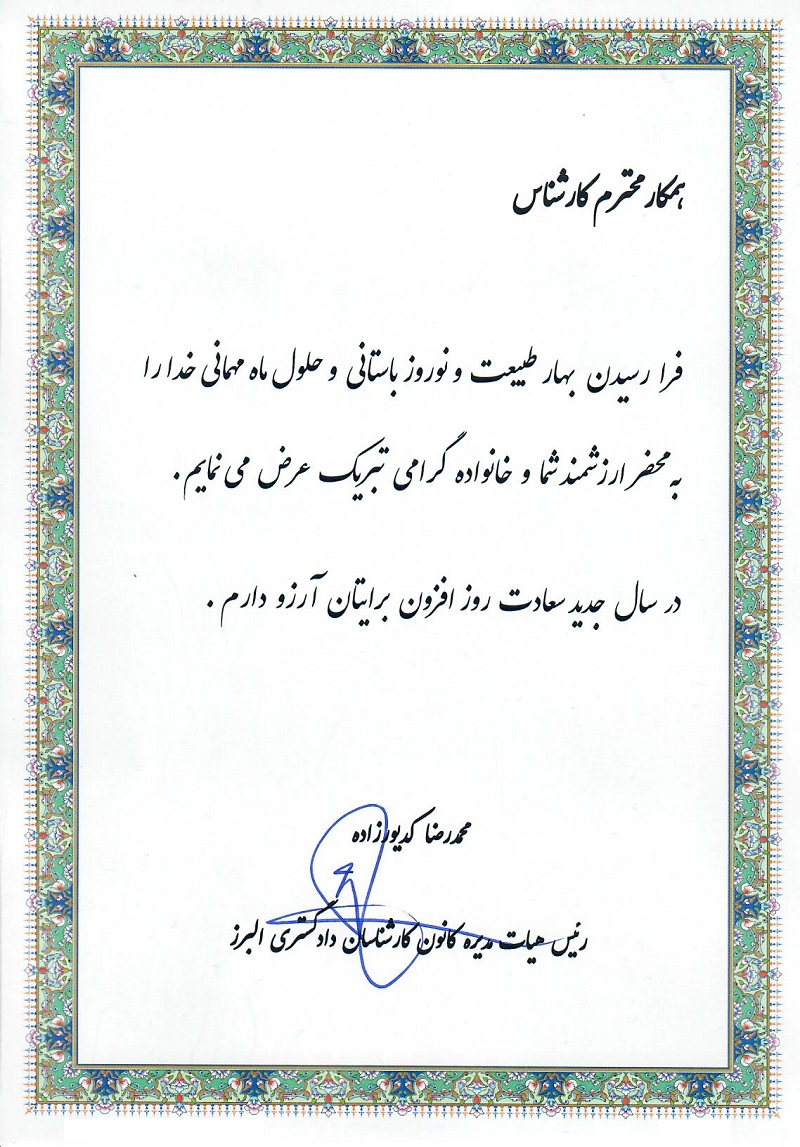 همکار محترم کارشناس
فرا رسیدن بهار طبیعت و نوروز باستانی و حلول ماه مهمانی خدا را
به محضر ارزشمند شما و خانواده گرامی تبریک عرض می نمایم.
در سال جدید سعادت روز افزون برایتان آرزو دارم .
محمدرضا کدیورزاده
رئیس هیات مدیره کانون کارشناسان دادگستری البرز